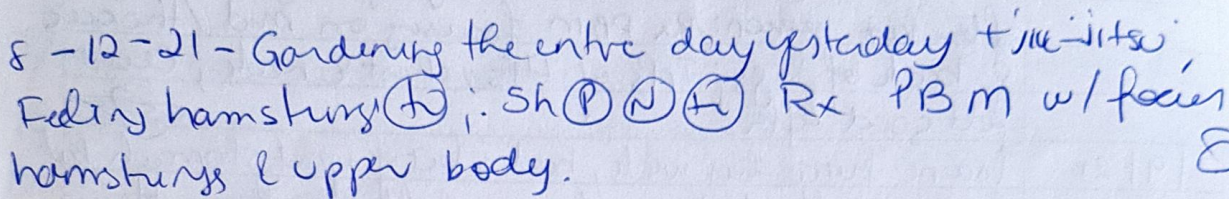 8-12-21 - Gardening the entire day yesterday + jiu-jitsu,
Feeling hamstrings; Sh (P) (N) Rx PBM w/ focus
hamstrings & upper body.